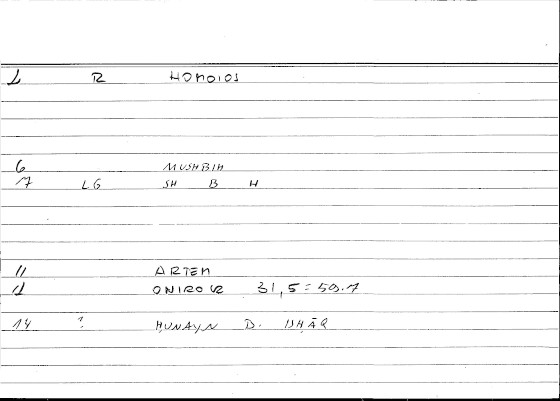 1 R HOMOIOS
6 MUSHBIH
7 LG SH B H
11 ARTEM
12 ONIROCR 31,5 = 59.7
14 ? ḤUNAYN B. ISḤĀQ